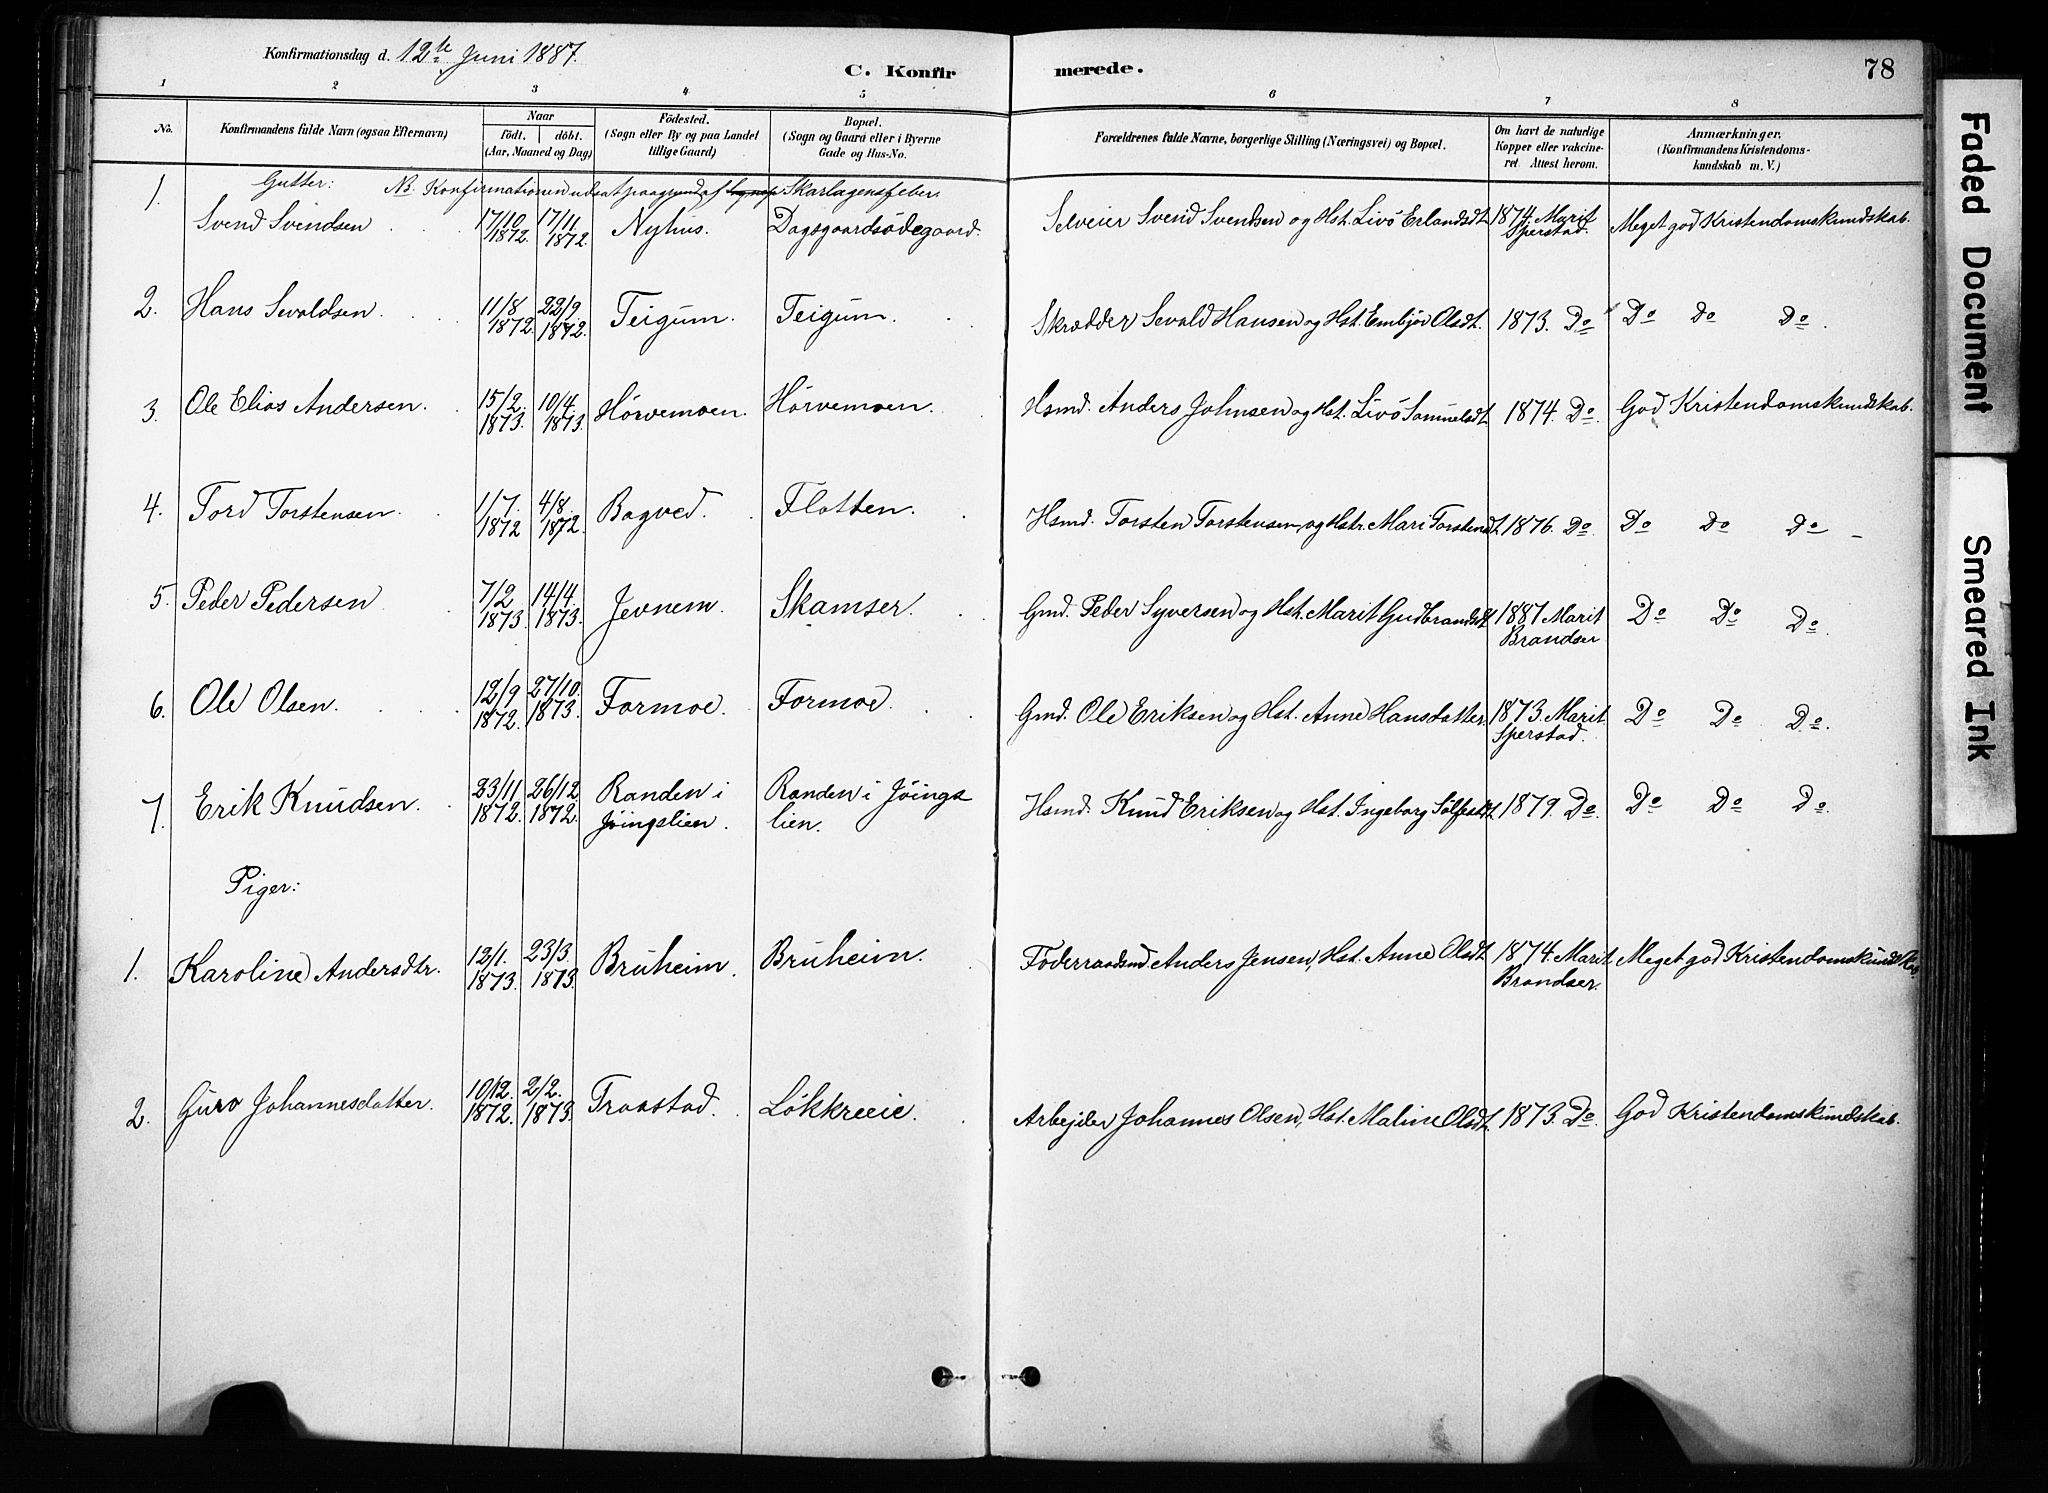 Konfirmationsdag d. 12te Juni 1887.
C. Konfirmerede.
78
1 2 3 4 5 6 7 8
No.
Konfirmandens fulde Navn (ogsaa Efternavn)
Naar
födt. döbt.
(Aar, Maaned og Dag)
Födested.
(Sogn eller By og paa Landet
tillige Gaard)
Bopæl.
(Sogn og Gaard eller i Byerne
Gade og Hus-No.
Forældrenes fulde Navne, borgerlige Stilling (Næringsvei) og Bopæl.
Om havt de naturlige
Kopper eller vakcine-
ret. Attest herom.
Anmærkninger.
(Konfirmandens Kristendoms-
kundskab m. V.)
Gutter: NB. Konfirmationen udsat paagrund af Skarlagensfeber
1. Svend Svendsen 17/10 1872 17/11 1872. Nyhus. Dagsgaardsödegaard. Selveier Svend Svendsen og Hst. Livö Erlandsdt. 1874. Marit Sperstad. Meget god Kristendomskundskab.
2. Hans Sevaldsen. 11/8 1872. 22/9 1872. Teigum. Teigum. Skrædder Sevald Hansen og Hst. Embjör Olsdt. 1873. Do Do Do Do.
3. Ole Elias Andersen. 15/2. 1873. 10/4. 1873. Hörvemoen. Hörvemoen. Hsmd. Anders Johnsen og Hst. Livö Samuelsdt. 1874. Do. God Kristendomskundskab.
4. Tord Torstensen. 1/7. 1872 4/8. 1872. Bagved. Flatten. Hsmd. Torsten Torstensen og Hstr. Mari Torstensdt. 1876. Do. Do Do Do
5. Peder Pedersen 7/2 1873. 14/4. 1873. Jevnem. Skamser. Gmd. Peder Syversen og Hst. Marit Gudbrandsdt. 1887 Marit Brandser Do Do Do.
6. Ole Olsen. 12/9 1872. 27/10. 1873. Formoe. Formoe. Gmd. Ole Eriksen og Hst. Anne Hansdatter. 1873. Marit Sperstad. Do Do Do.
7. Erik Knudsen. 23/11 1872. 26/12 1872. Randen i Jöingslien. Randen i Jöingslien. Hsmd. Knud Eriksen og Hst. Ingeborg Sölfestdt. 1879. Do. Do Do Do.
Piger:
1. Karoline Andersdtr. 12/1. 1873. 23/3. 1873. Bruheim. Bruheim. Föderraadsmd Anders Jensen, Hst. Anne Olsdt. 1874. Marit Brandser. Meget god Kristendomskundskab
2. Guro Johannesdatter. 10/12. 1872. 2/2. 1873. Traastad. Lökkreeie. Arbejder Johannes Olsen, Hst. Maline Olsdt. 1873. Do. God Kristendomskundskab.
Faded Document
Smeared Ink